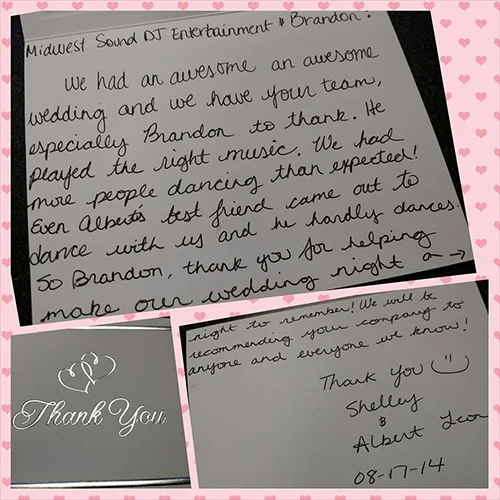 Midwest Sound DJ Entertainment & Brandon!
We had an awesome an awesome
wedding and we have your team,
especially Brandon to thank. He
played the right music. We had
more people dancing than expected!
Even Albert's best friend came out to
dance with us and he hardly dances.
So Brandon, thank you for helping
make our wedding night a →
night to remember! We will be
recommending your company to
anyone and everyone we know!
Thank You
Shelley
&
Albert
08-17-14
Thank You